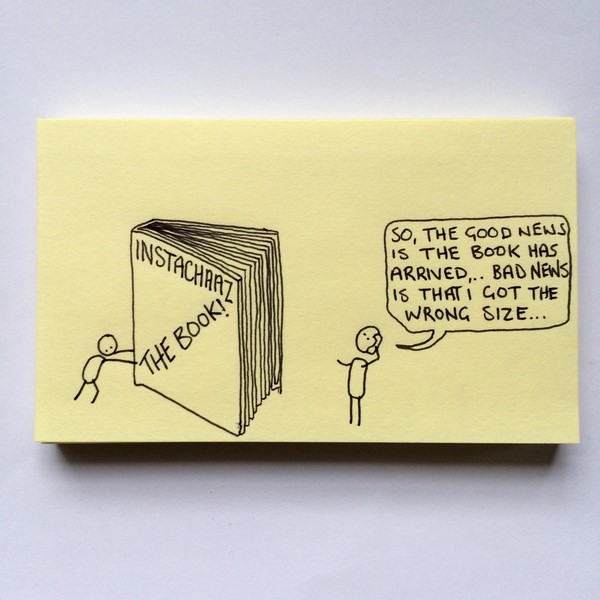 INSTACHAAZ
THE BOOK!
SO, THE GOOD NEWS
IS THE BOOK HAS
ARRIVED,.. BAD NEWS
IS THAT I GOT THE
WRONG SIZE...